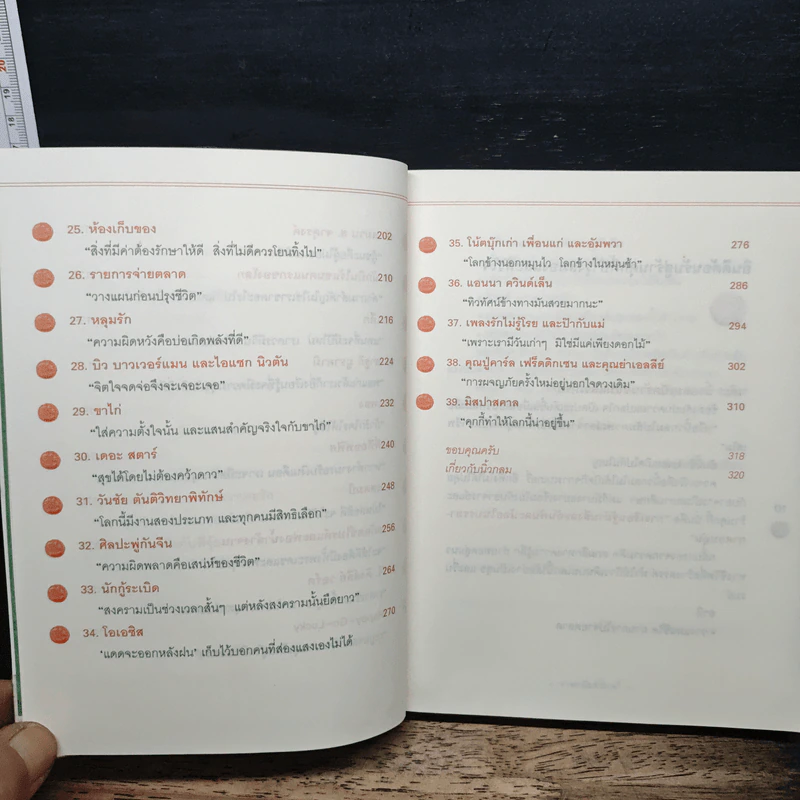 20
19
17
25. ห้องเก็บของ 202
"สิ่งที่มีค่าต้องรักษาให้ดี สิ่งที่ไม่ดีควรโยนทิ้งไป"
26. รายการจ่ายตลาด 210
"วางแผนก่อนปรุงชีวิต"
27. หลุมรัก 216
"ความผิดหวังคือบ่อเกิดพลังที่ดี"
28. บิว บาวเวอร์แมน และไอแซก นิวตัน 224
"จิตใจจดจ่อจึงจะเจอะเจอ"
29. ขาไก่ 232
"ใส่ความตั้งใจนั้น และแสนสำคัญจริงใจกับขาไก่"
30. เดอะ สตาร์ 240
"สุขได้โดยไม่ต้องคว้าดาว"
31. วันชัย ตันติวิทยาพิทักษ์ 248
"โลกนี้มีงานสองประเภท และทุกคนมีสิทธิเลือก"
32. ศิลปะพู่กันจีน 256
"ความผิดพลาดคือเสน่ห์ของชีวิต"
33. นักกู้ระเบิด 264
"สงครามเป็นช่วงเวลาสั้นๆ แต่หลังสงครามนั้นยืดยาว"
34. โอเอซิส 270
'แดดจะออกหลังฝน' เก็บไว้บอกคนที่ส่องแสงเองไม่ได้
35. โน้ตบุ๊กเก่า เพื่อนแก่ และอัมพวา 276
"โลกข้างนอกหมุนไว โลกข้างในหมุนช้า"
36. แอนนา ควินด์เล็น 286
"ทิวทัศน์ข้างทางมันสวยมากนะ"
37. เพลงรักไม่รู้โรย และป๊ากับแม่ 294
"เพราะเรามีวันเก่าๆ มิใช่มีแค่เพียงดอกไม้"
38. คุณปู่คาร์ล เฟร็ดดิกเซน และคุณย่าเอลลีย์ 302
"การผจญภัยครั้งใหม่อยู่นอกใจดวงเดิม"
39. มิสปาสคาล 310
"คุกกี้ทำให้โลกนี้น่าอยู่ขึ้น"
ขอบคุณครับ 318
เกี่ยวกับนิ้วกลม 320